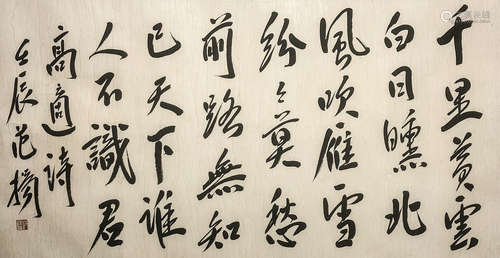 千里黃雲
白日曛北
風吹雁雪
紛々莫愁
前路無知
己天下誰
人不識君
高適詩
壬辰范揚